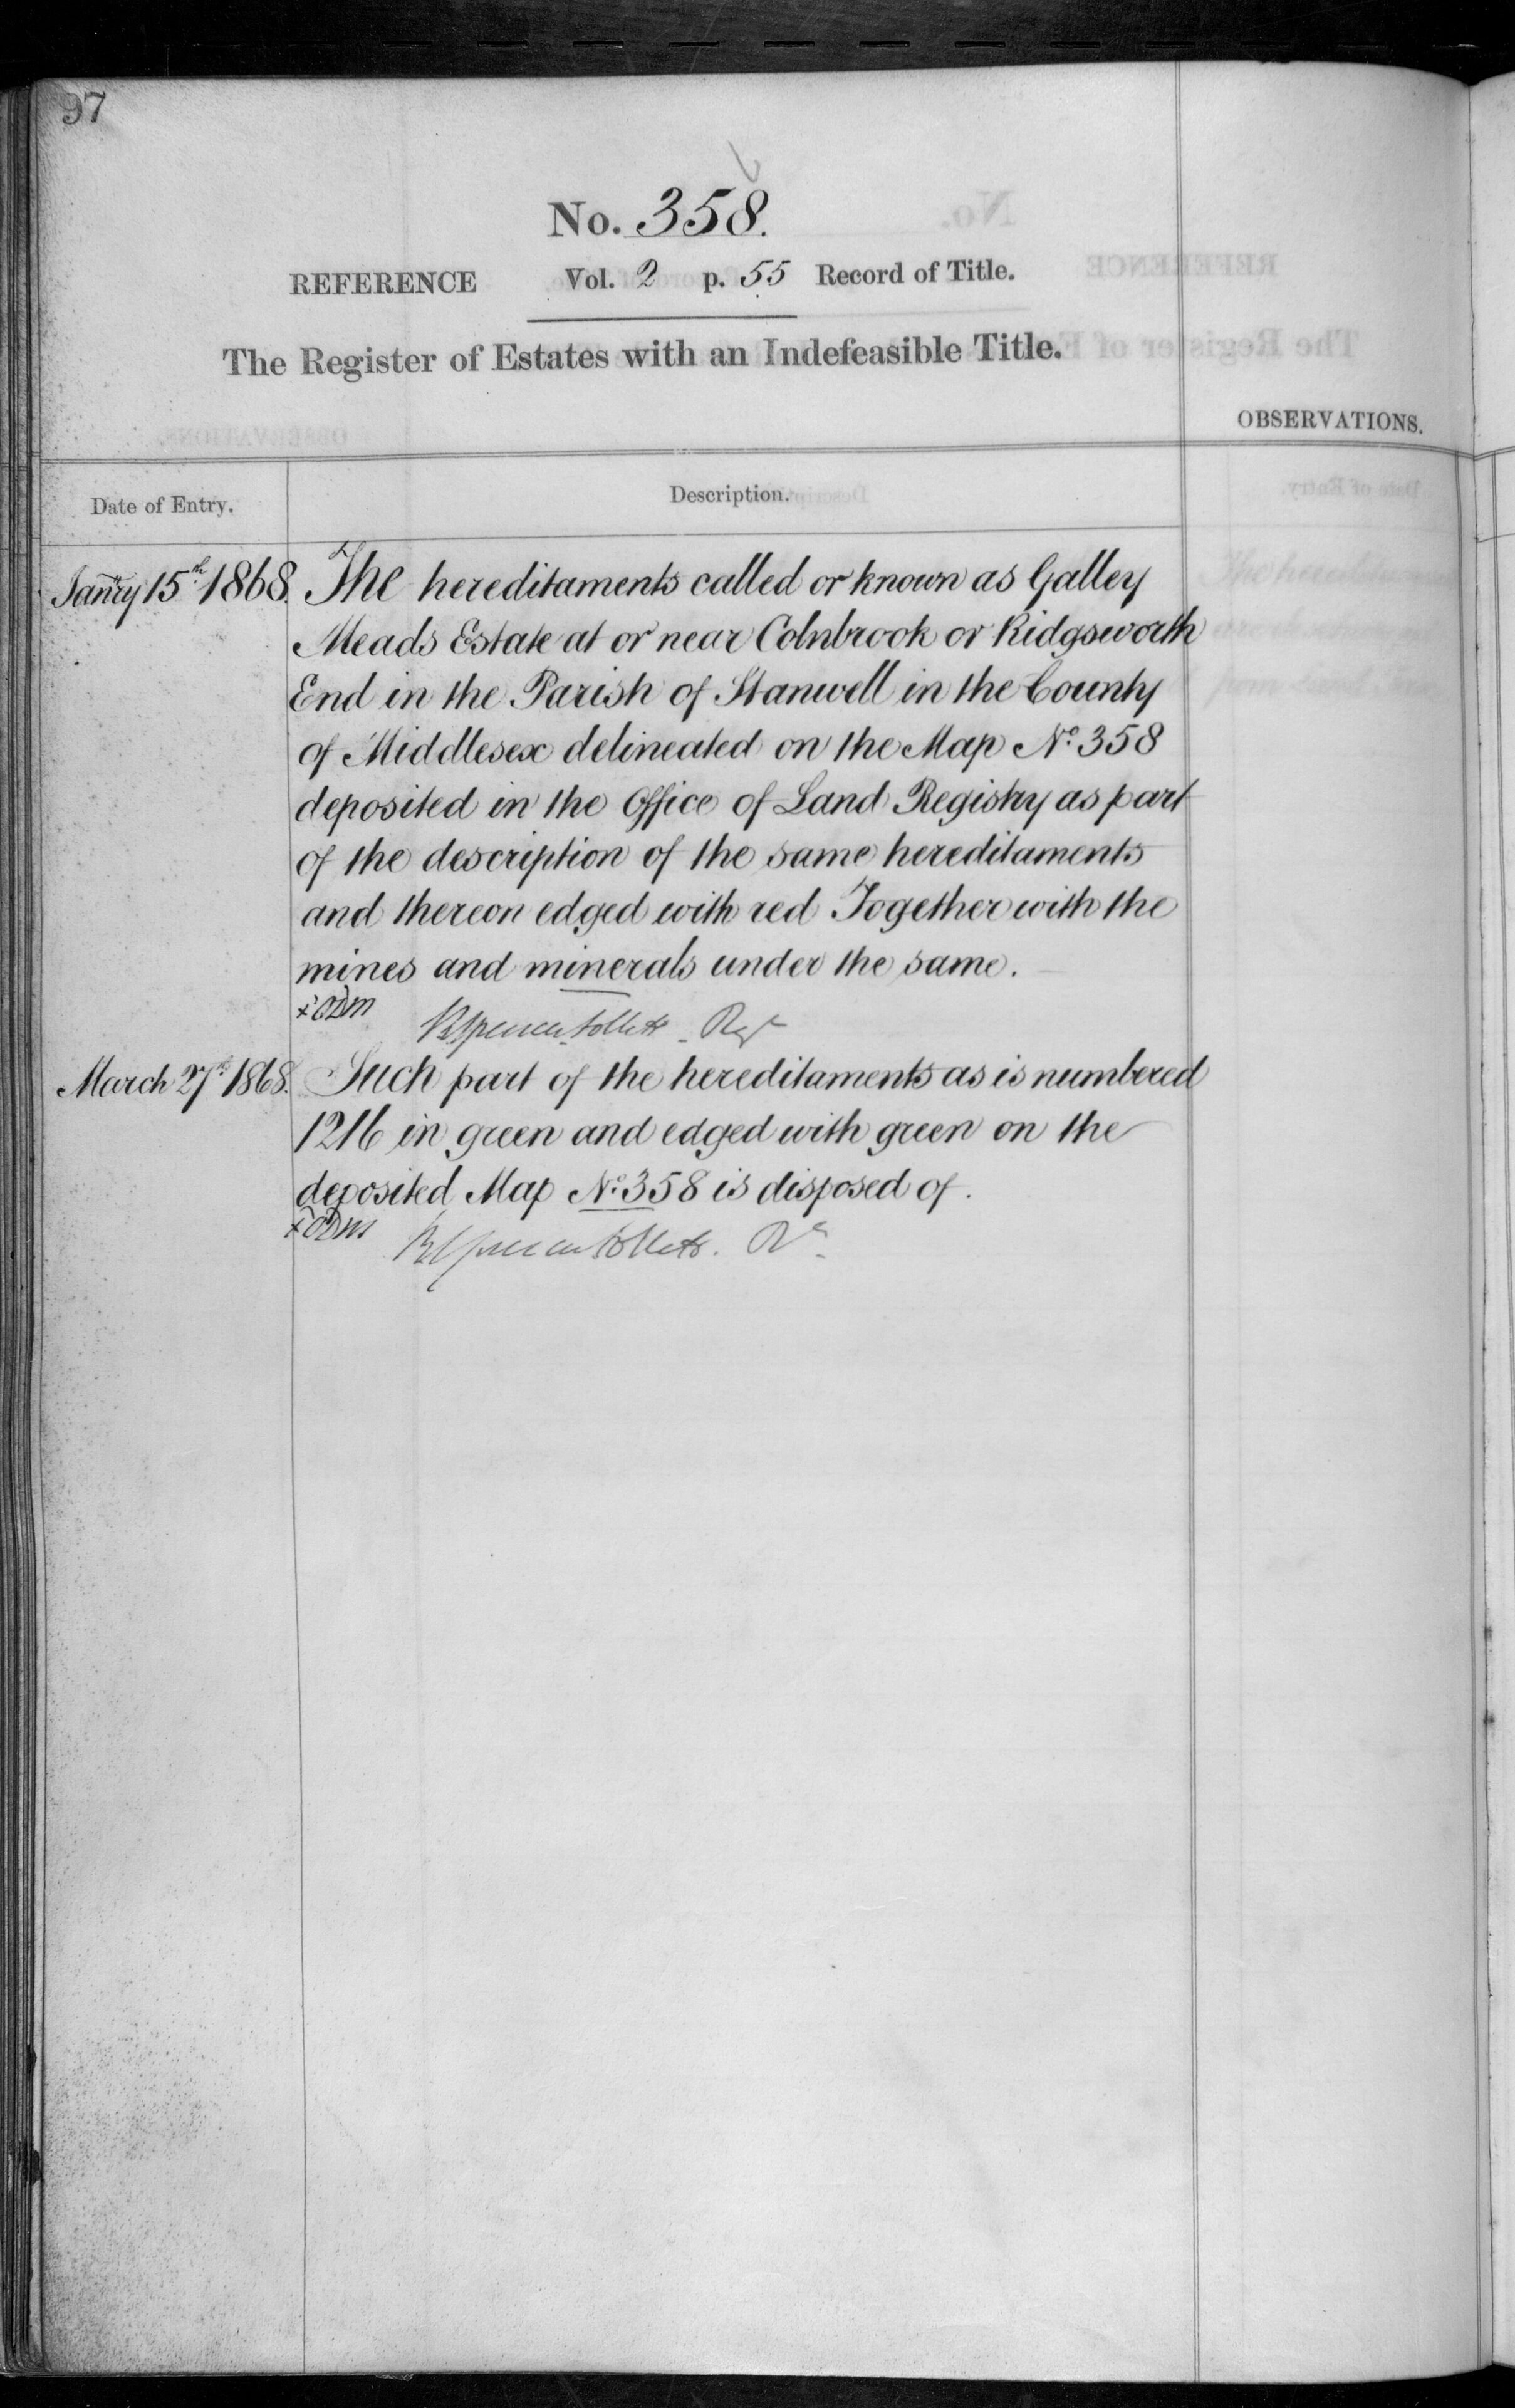 97
No. 358.
REFERENCE Vol. 2 p. 55 Record of Title.
The Register of Estates with an Indefeasible Title.
OBSERVATIONS.
Date of Entry. Description.
Janry 15th 1868. The hereditaments called or known as Galley
Meads Estate at or near Colnbrook or Ridgsworth
End in the Parish of Stanwell in the County
of Middlesex delineated on the Map No. 358
deposited in the Office of Land Registry as part
of the description of the same hereditaments
and thereon edged with red Together with the
mines and minerals under the same.
Regr
March 27th 1868. Such part of the hereditaments as is numbered
1216 in green and edged with green on the
deposited Map No. 358 is disposed of.